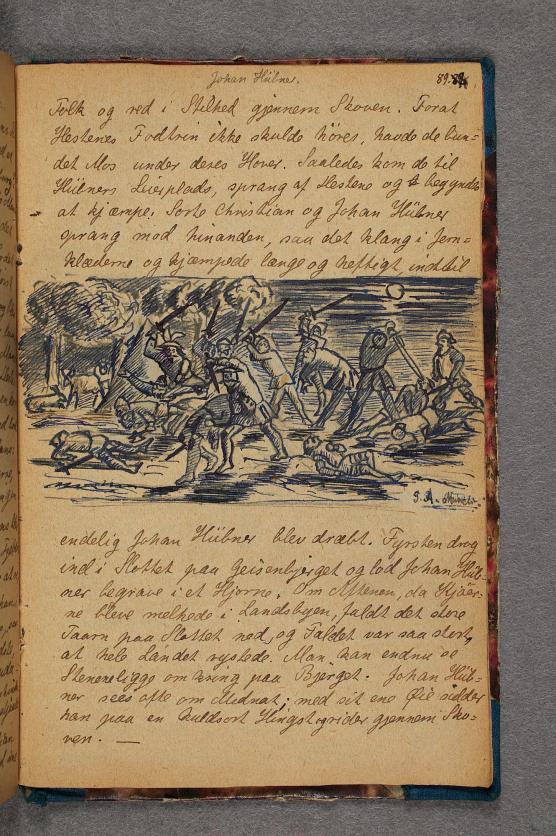 Johan Hübner.
89.
Folk og red i Stilhed gjennem Skoven. Forat
Hestenes Fodtrin ikke skulde höres, havde de bun-
det Mos under deres Hover. Saaledes kom de til
Hübners Luerplads, sprang af Hestene og begyndte
at kjæmpe. Sorte Christian og Johan Hübner
sprang mod hinanden, saa det klang i Jern-
klæderne og kjæmpede længe og heftigt, indtil
endelig Johan Hübner blev dræbt. Fyrsten drog
ind i Slottet paa Geisenbjerget og lod Johan Hüb-
ner begrave i et Hjorne. Om Aftenen, da Kjöer-
ne bleve melkede i Landsbyen, faldt det store
Taarn paa Slottet ned, og Faldet var saa stort,
at hele Landet rystede. Man kan endnu se
Stenene ligge omkring paa Bjerget. Johan Hüb-
ner sees ofte om Midnat; med sit ene Øie sidder
han paa en kulsort Hingst og rider gjennem Sko-
ven. —